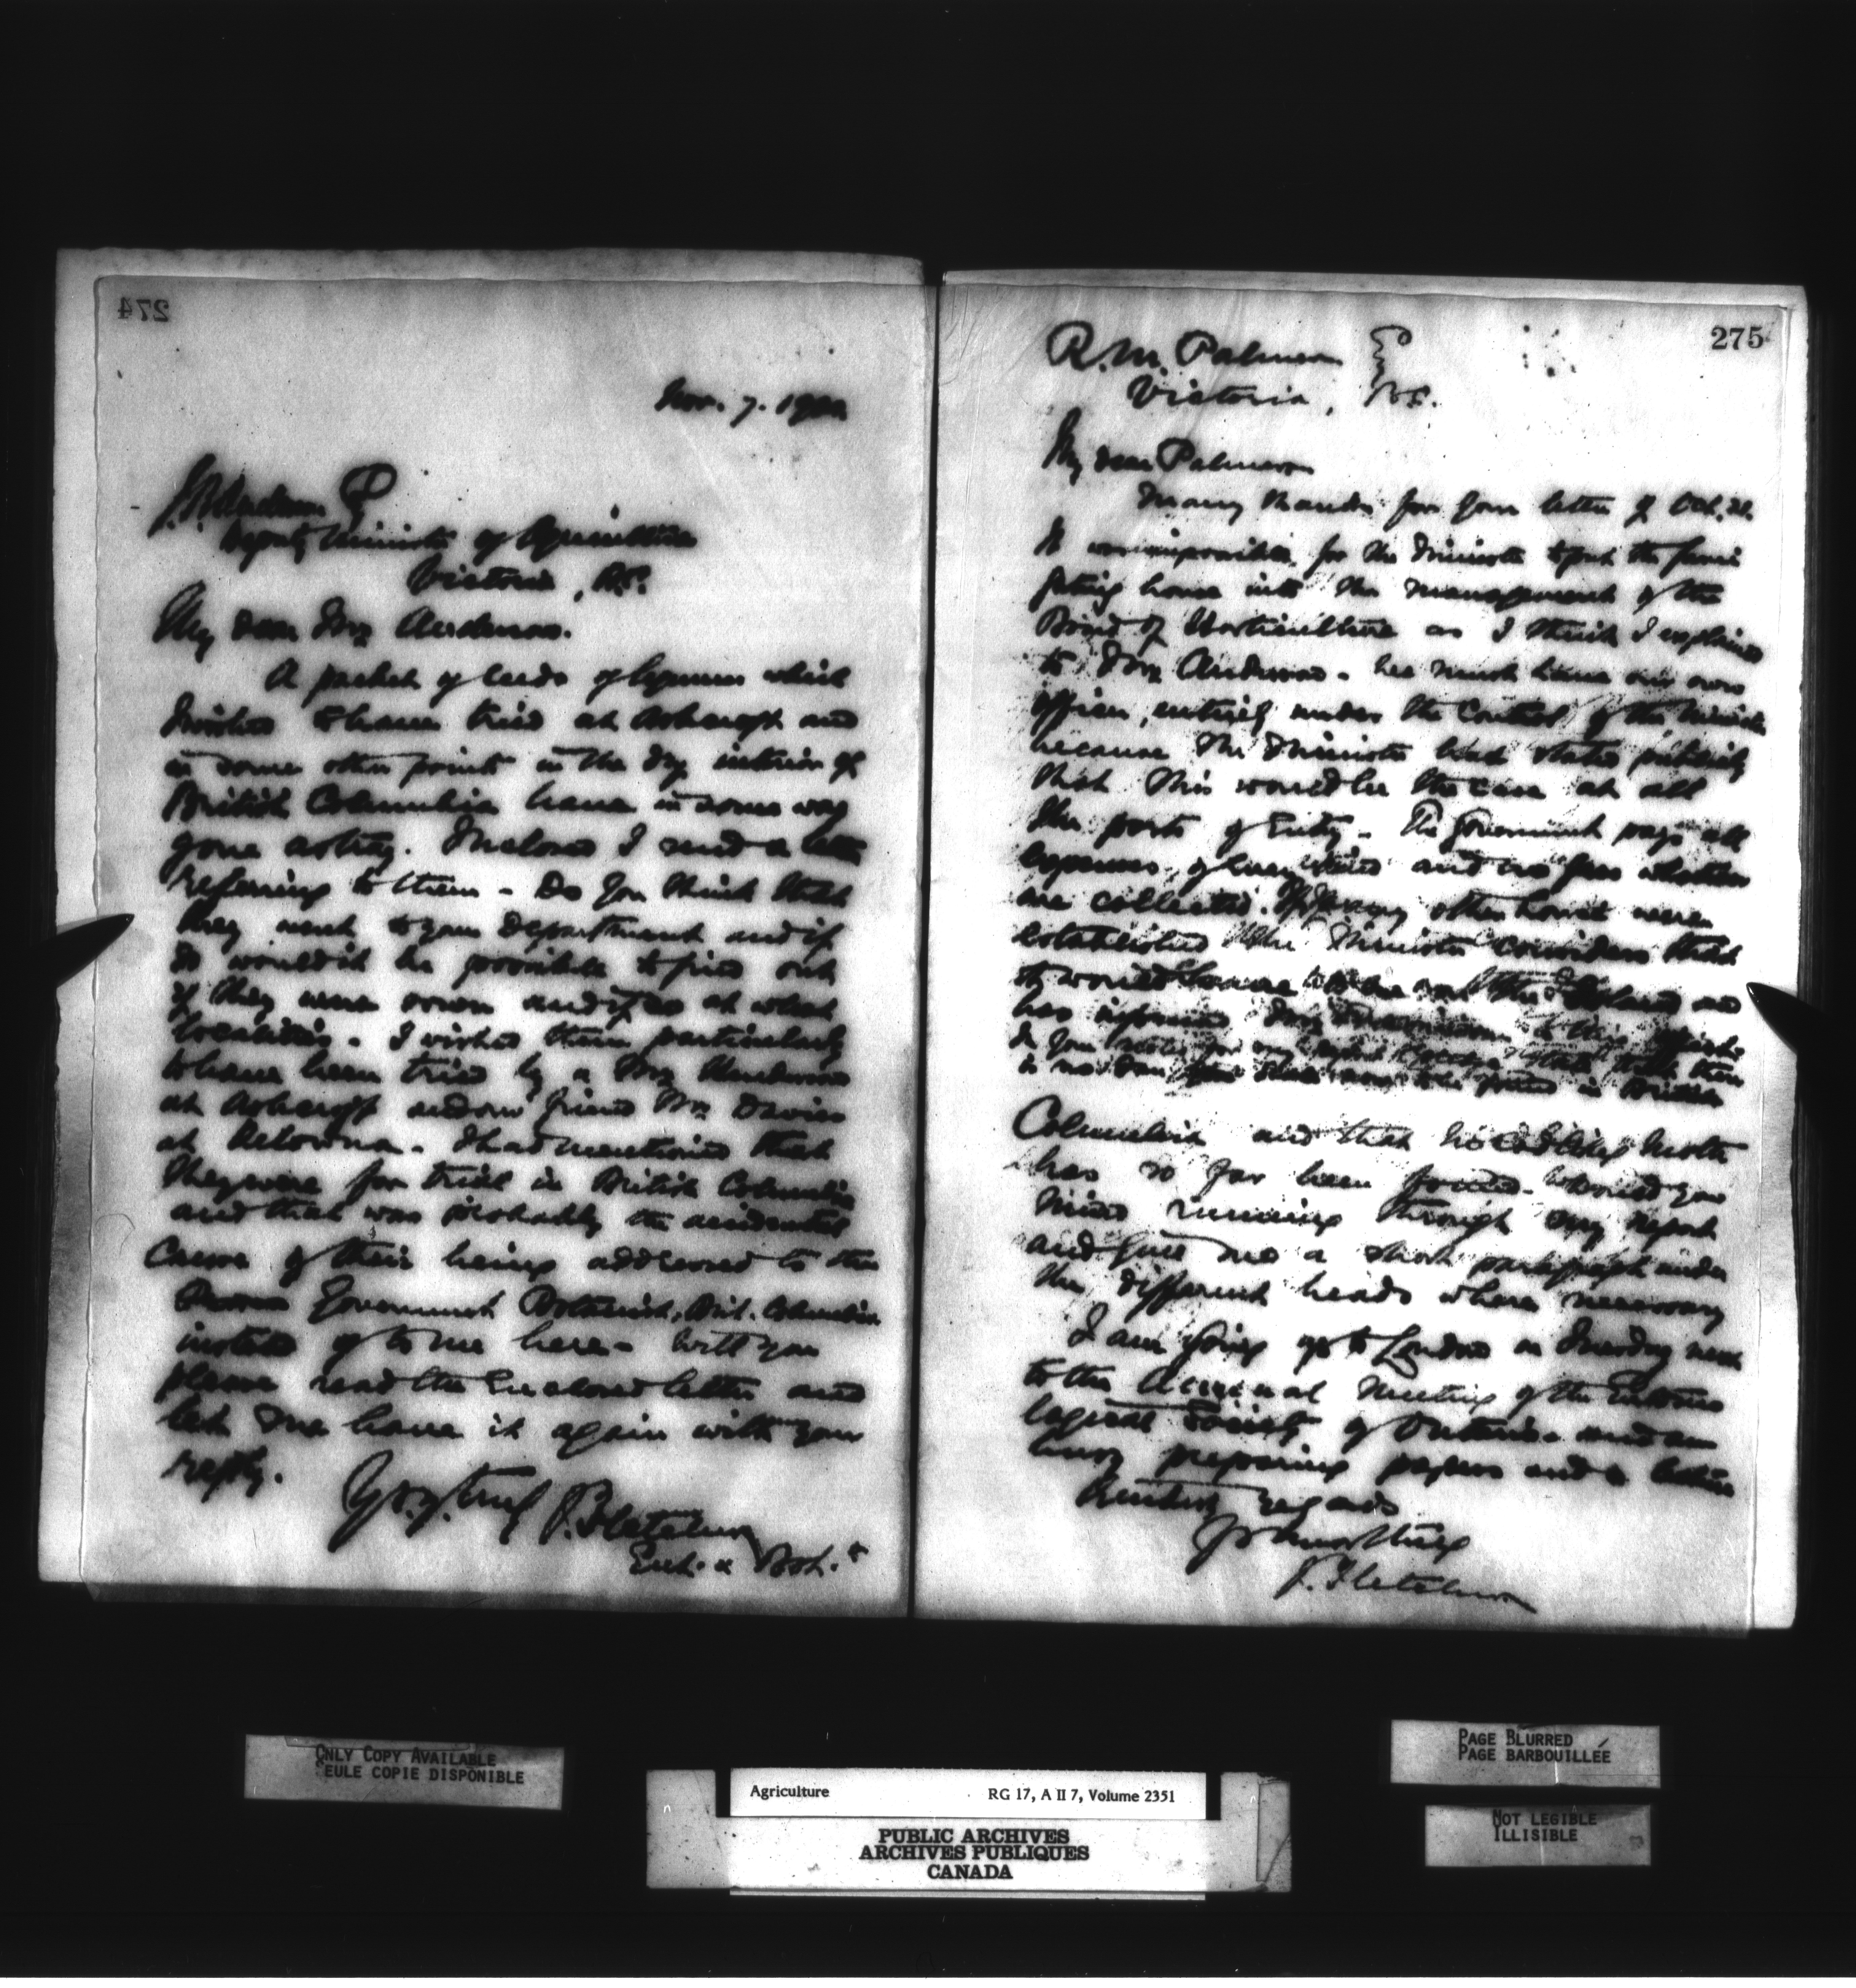 274
Nov. 7. 1900
J. R. Anderson Esq
Deputy Minister of Agriculture
Victoria, B.C.
My dear Mr Anderson.
A packet of seeds of which
I wished to have tried at Ashcroft and
in some other point in the dry interior of
British Columbia have in some way
gone astray. Inclosed I send a letter
referring to them - Do you think that
they went to your Department and if
so would it be possible to find out
if they were sown and if so at what
localities. I wished them particularly
to have been tried by a Mr Henderson
at Ashcroft and our friend Mr Davies
at Kelowna. I had mentioned that
they were for trial in British Columbia
and that was probably the accidental
cause of their being addressed to the
Government Botanist, Brit. Columbia
instead of to me here - Will you
please read the enclosed letter and
let me have it again with your
reply.
Yrs. v. truly J. Fletcher
Ent. & Bot.
275
R. M. Palmer Esq
Victoria, B.C.
My dear Palmer
Many thanks for your letter of Oct. 31.
It was impossible for the Minister to put the fumi
gating house into the management of the
Board of Horticulture as I think I explained
to Mr Anderson. We must have our own
officer, entirely under the control of the Minister
because the Minister had stated publicly
that this would be the case at all
the ports of Entry. The Government pays all
expenses of every kind and no fees whatever
are collected. If any other house were
established the Minister considers that
it would have to be on the Island and
has informed Mr
do you that there
is no San Jose Scale to be found in British
Columbia and that no codling moth
has so far been found. Would you
mind running through my report
and give me a short paragraph under
the different heads where necessary
I am going up to London on Tuesday next
to the Annual Meeting of the Entomo
logical Society of Ontario and am
busy preparing papers and a lecture
Kindest regards
Yrs very truly
J. Fletcher
ONLY COPY AVAILABLE
SEULE COPIE DISPONIBLE
PAGE BLURRED
PAGE BARBOUILLÉE
NOT LEGIBLE
ILLISIBLE
Agriculture RG 17, A II 7, Volume 2351
PUBLIC ARCHIVES
ARCHIVES PUBLIQUES
CANADA